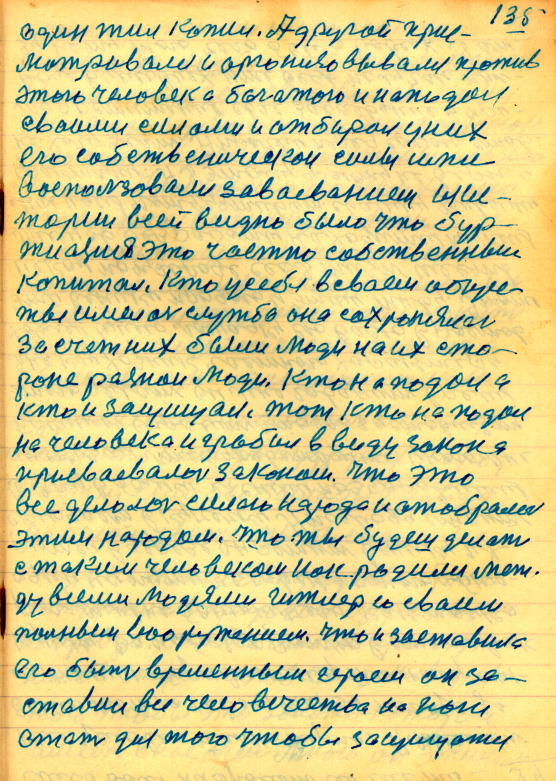 135
один жил копил. А другой прис-
матривали и организовывали против
этого человека богатого и нападал
своими силами и отбирал у них
его собственической силы или
воспользовали завоеванием Ис-
тории всей видно было что бур-
жуазия это частно собственный
капитал. Кто у себя в своем обще-
жы имелоя служба она сохранялас
За счет них были люди на их сто-
роне разной люди. Кто нападал а
кто и защищал. тот кто нападал
на человека и грабил в виду закона
присваевалоя законом. Что это
все делалоя силою народа и отобралоя
этим народом. Что ты будеш делат
с таким человеком как родили меж.
ду всеми людями гитлер со своим
полным вооружением. Что и заставила
его быт временным героем он за-
ставил все человечества на ноги
стат для того чтобы защищати